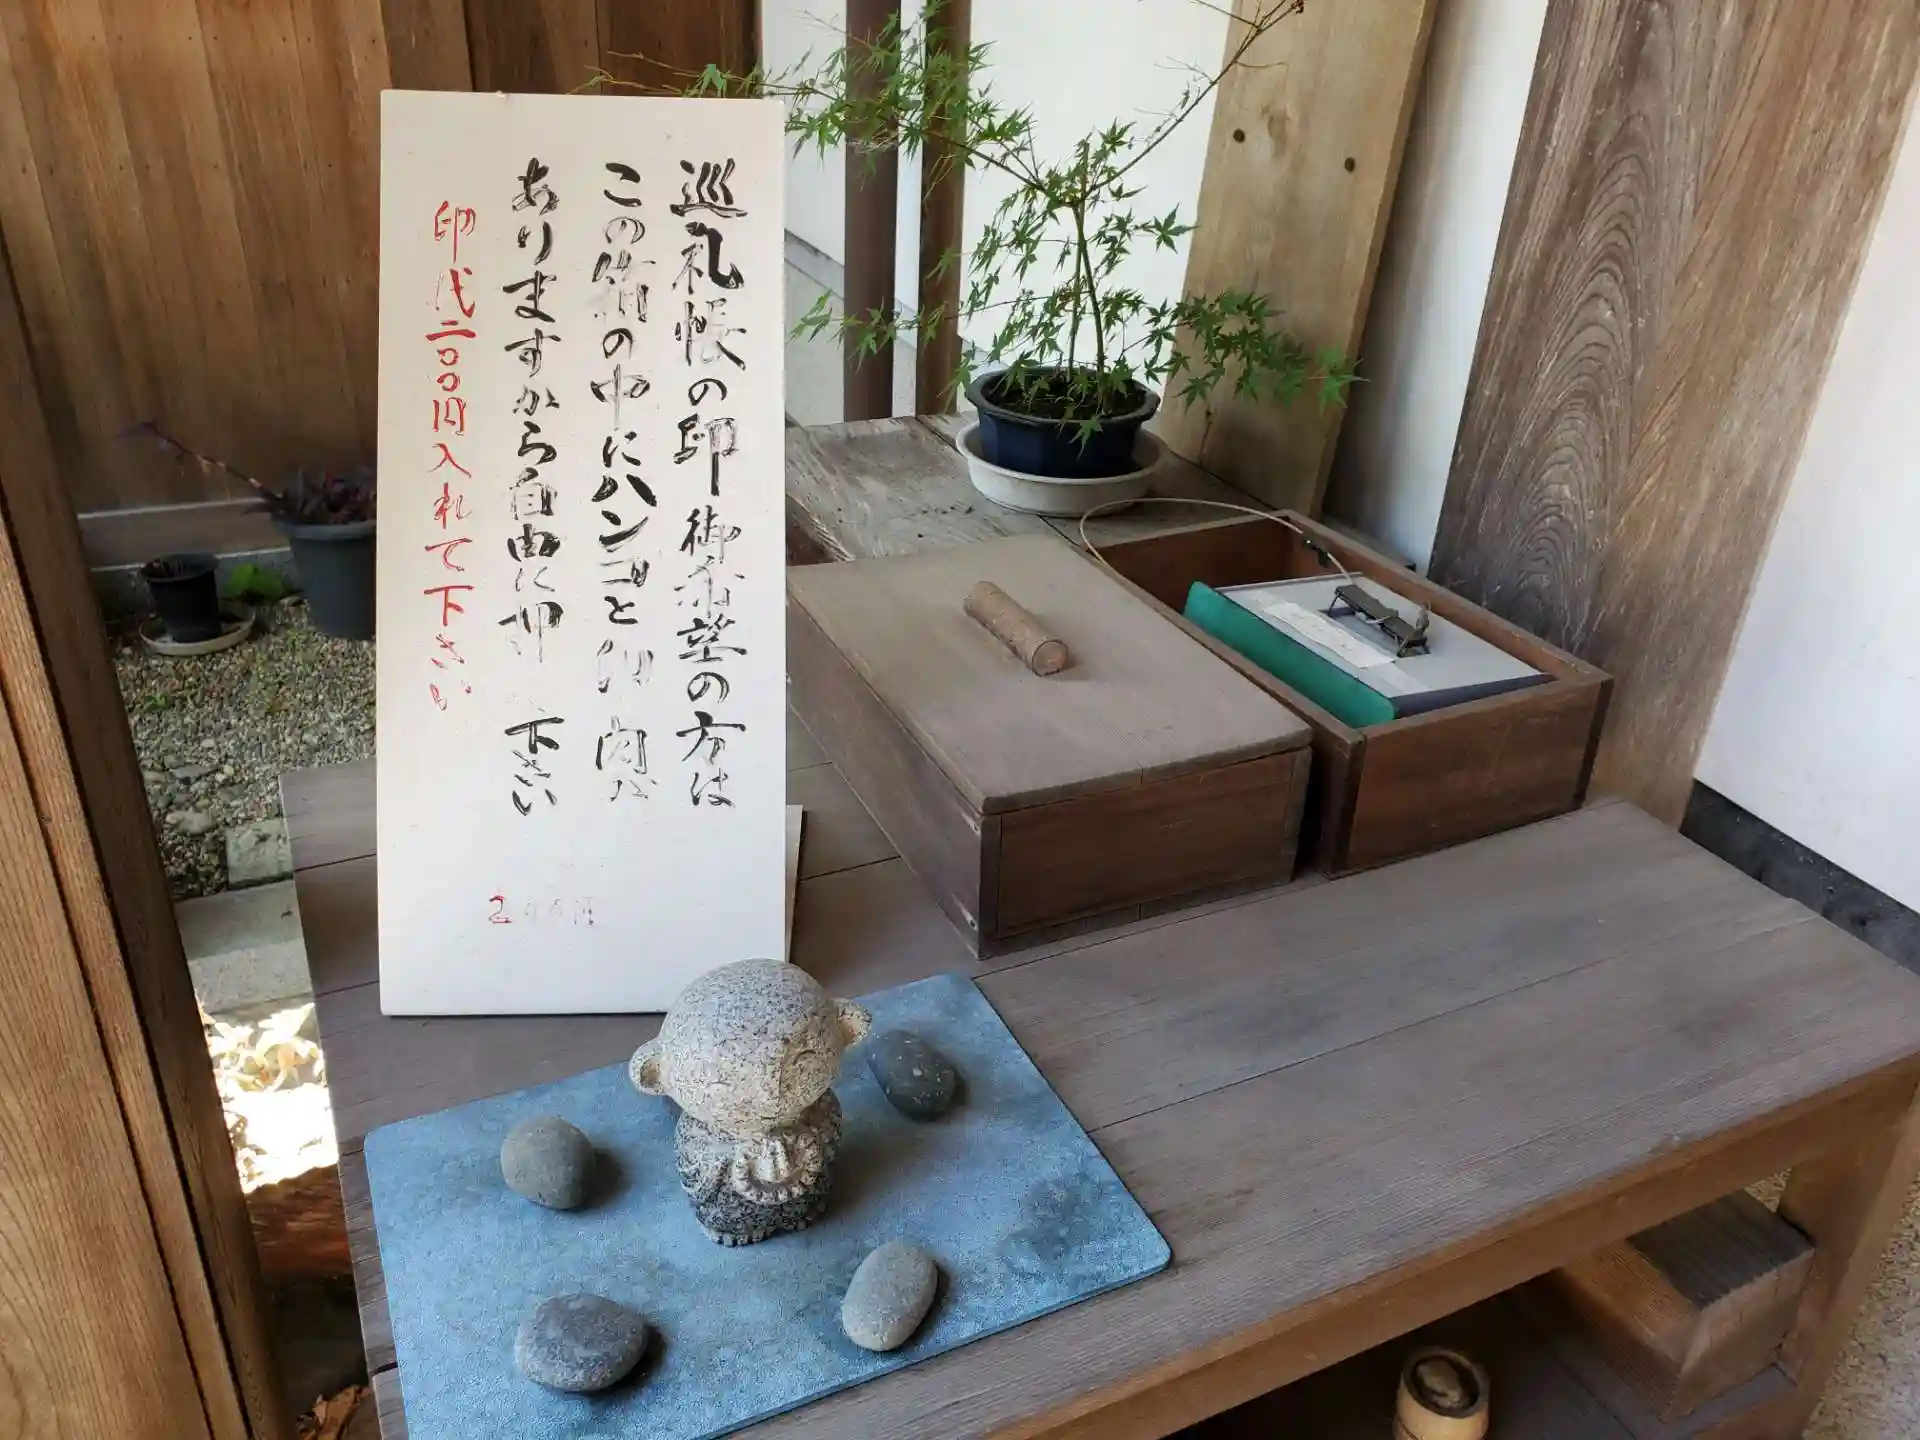 巡礼帳の印御希望の方は
この箱の中にハンコと印肉が
ありますから自由に押下さい
印代二〇〇円入れて下さい
200円